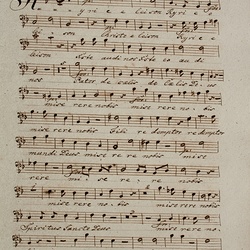 yrie eleison Kyrie
eison Christe eleison Kyrie e
leison audi nos audi
nos Pater de coelis de Coelis Deus
miserere nobis miserere nobis
miserere nobis Fili redemptor redemptor
mundi Deus miserere nobis mise
rere mi se re re nobis
miserere nobis miserere nobis
Spiritus Sancte Deus miserere no